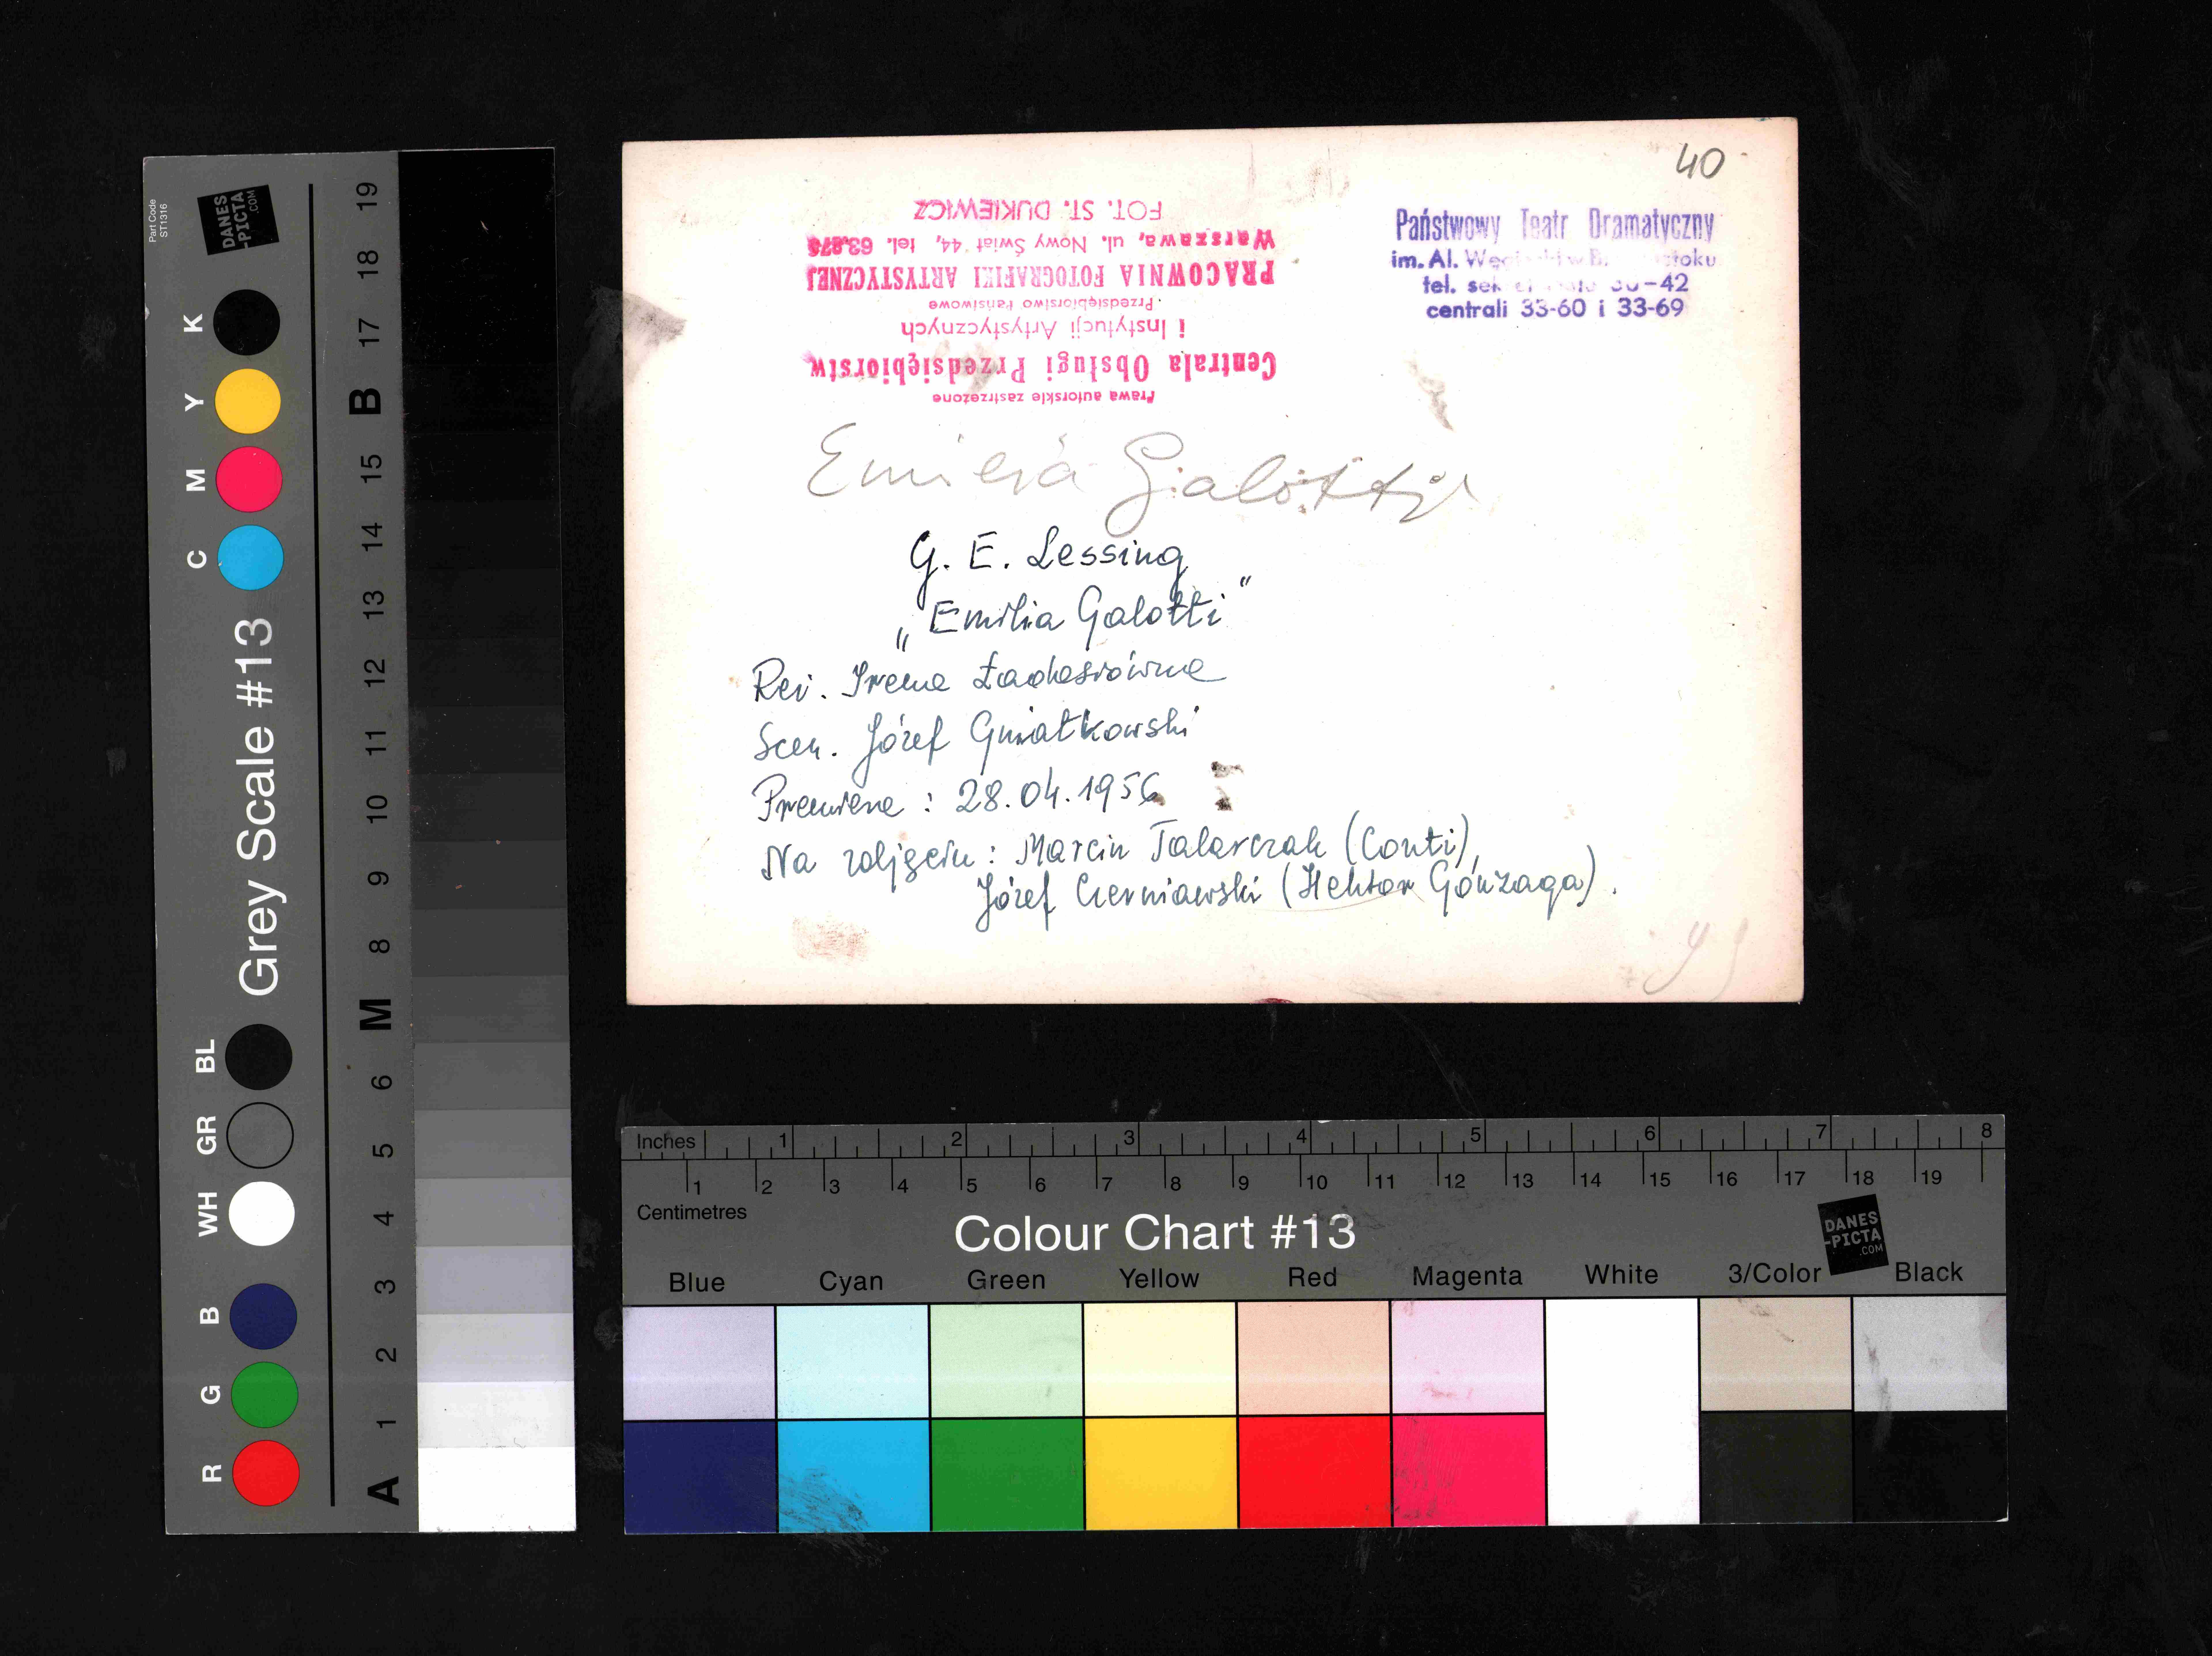 40
FOT. ST. DUKIEWICZ
Warszawa, ul. Nowy Świat 44, tel.
PRACOWNIA FOTOGRAFIKI ARTYSTYCZNEJ
Przedsiębiorstwo Państwowe
i Instytucji Artystycznych
Centrala Obsługi Przedsiębiorstw
Prawa autorskie zastrzeżone
Państwowy Teatr Dramatyczny
im. Al.
tel.
centrali 33-60 i 33-69
Emilia Galotti
G. E. Lessing
„Emilia Galotti"
Reż. Irena
Scen. Józef Gwiatkowski
Premiera : 28.04.1956
Na zdjęciu : Marcin Talarczak (Conti),
Józef Czerniawski (Hektor Gonzaga).
Part Code
ST1316
DANES
-PICTA
.COM
Grey Scale #13
K Y M C
BL GR WH
B G R
19 18 17 B 15 14 13 12 11 10 9 8 M 6 5 4 3 2 1 A
Inches 1 2 3 4 5 6 7 8
1 2 3 4 5 6 7 8 9 10 11 12 13 14 15 16 17 18 19
Centimetres
Colour Chart #13
DANES
-PICTA
.COM
Blue Cyan Green Yellow Red Magenta White 3/Color Black